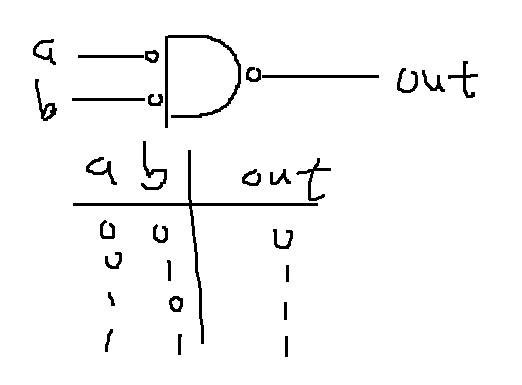 a
out
b
a b out
0 0 0
0 1 1
1 0 1
1 1 1